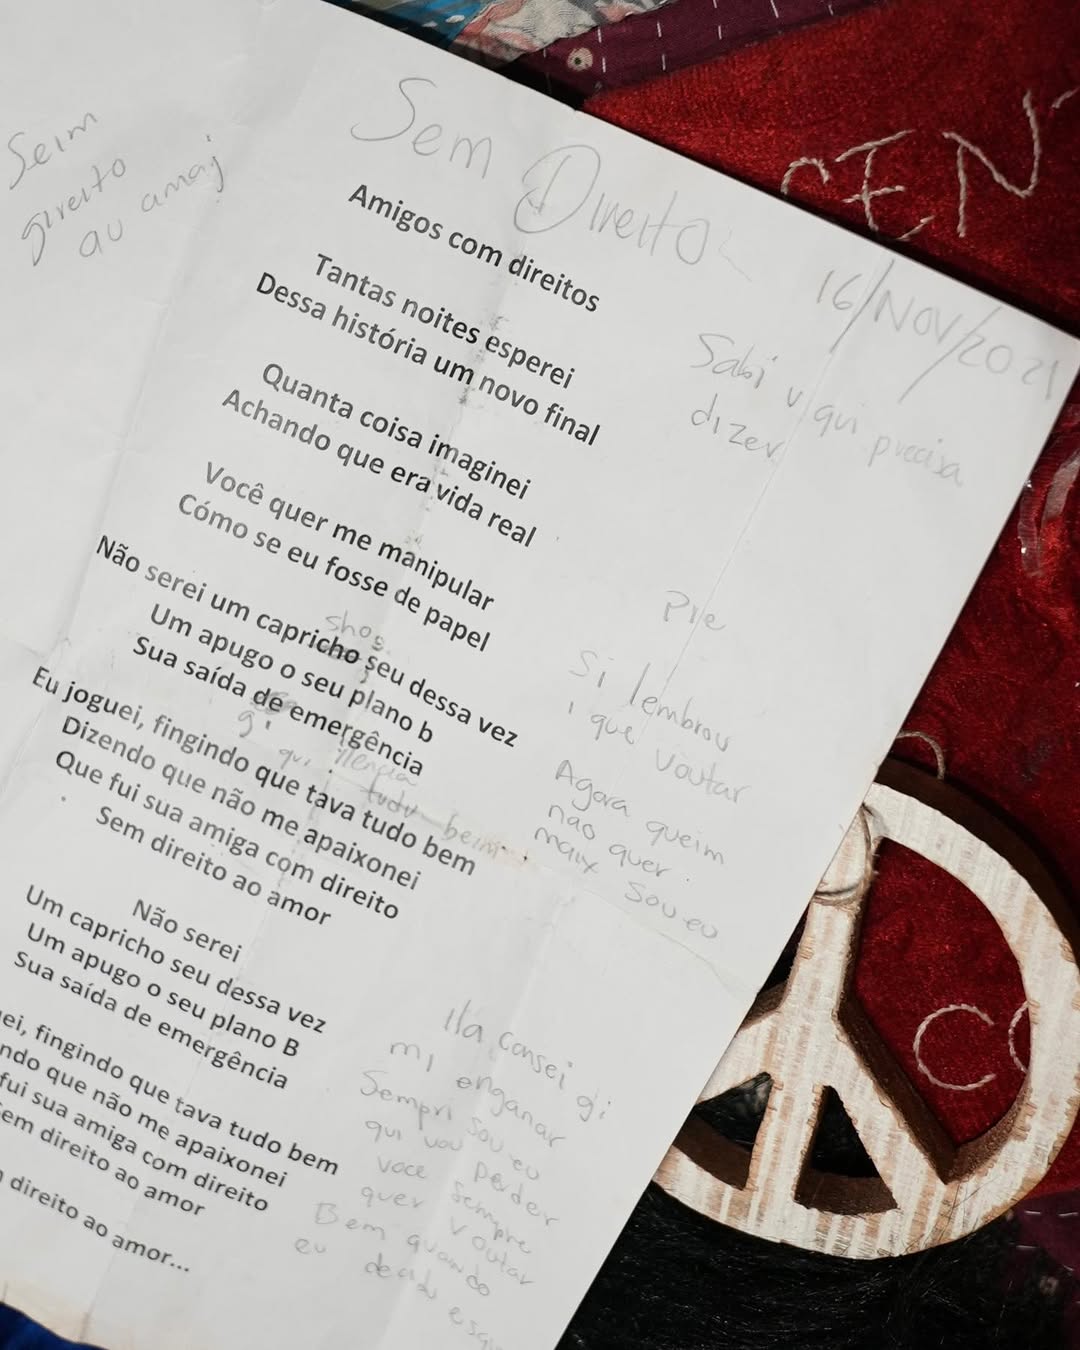 Sem Direito
16/NOV/2021
Seim
direito
au amaj
Amigos com direitos
Tantas noites esperei
Dessa história um novo final
Quanta coisa imaginei
Achando que era vida real
Você quer me manipular
Cómo se eu fosse de papel
Não serei um capricho seu dessa vez
Um apugo o seu plano b
Sua saída de emergência
Eu joguei, fingindo que tava tudo bem
Dizendo que não me apaixonei
Que fui sua amiga com direito
Sem direito ao amor
Não serei
Um capricho seu dessa vez
Um apugo o seu plano B
Sua saída de emergência
ei, fingindo que tava tudo bem
ndo que não me apaixonei
fui sua amiga com direito
em direito ao amor
direito ao amor...
shog
gi
qui
tudu beim
Sabi u qui precisa
dizer
Pre
Si lembrou
i que voutar
Agora queim
não quer
maix sou eu
Ita consei gi
mi enganar
Sempri sou eu
qui vou perder
voce sempre
quer voutar
Bem quando
eu
CEN
CO